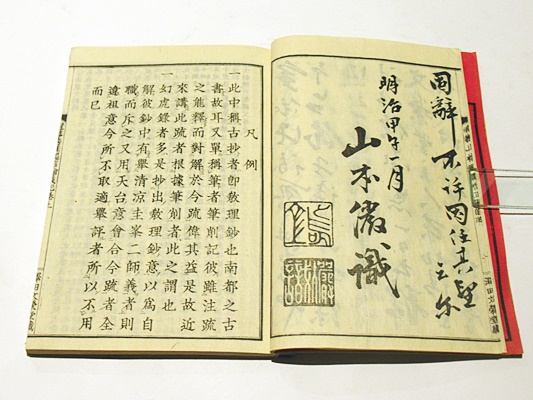 固辭不許因任其望云尓
明治甲午一月
山本儼識
凡例
一此中稱古抄者即敎理鈔也南都之古
書故耳又單稱筆者筆削記彼雖注疏
之能釋而對解於今疏偉其益是故近
來講此疏者根據筆削者此之謂也
一幻虎錄者多是抄出敎理鈔意以爲自
解彼鈔中有擧淸凉圭峯二師義者則
職而斥之又用天台意會合今疏者全
違祖意今所不取適擧評者所以不用
而已